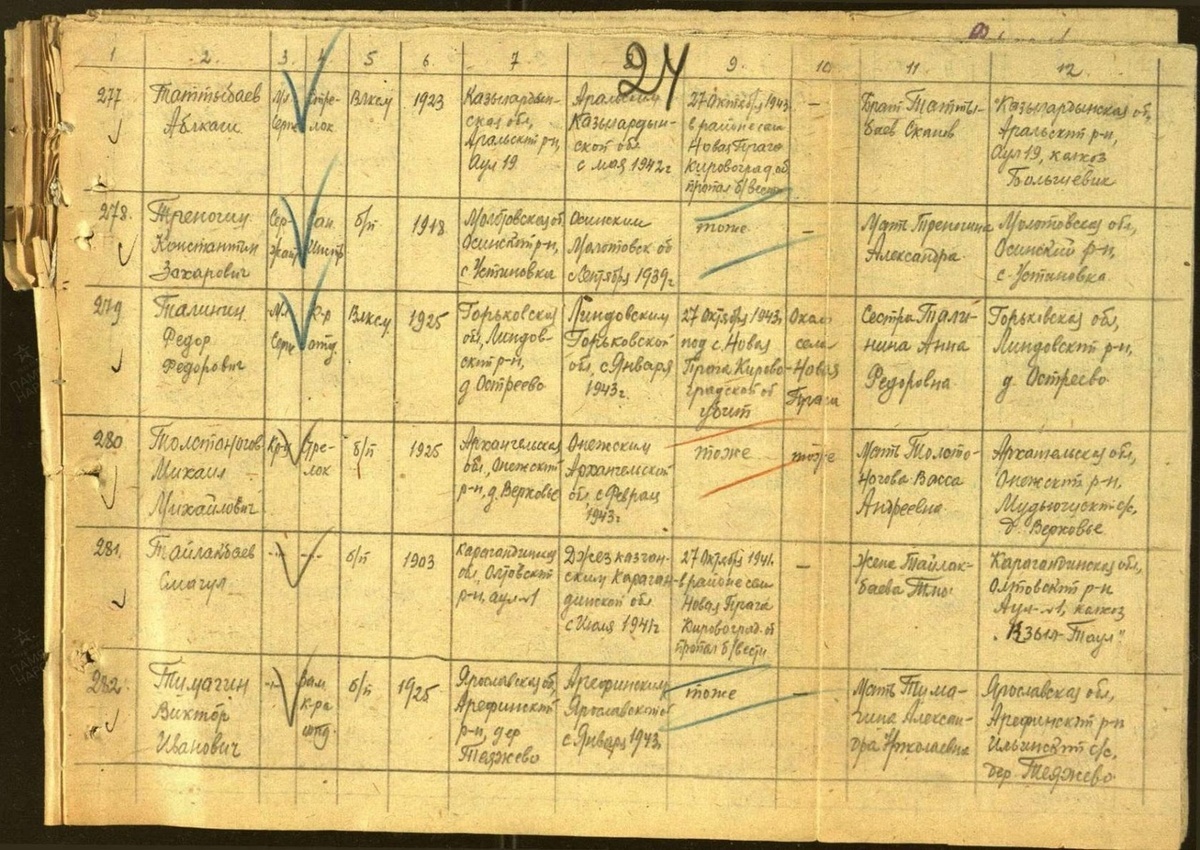 24
1 2. 3. 4. 5 6. 7 8 9. 10 11 12.
277
Таттыбаев
Абжаги
Мл
Серж
Стре-
лок
Влксм
1923
Казылардын-
ская обл,
Аральский р-н,
Аул 19
Аральским
Казылардын-
ской обл
с мая 1942г
27 Октября 1943.
в районе села
Новая Прага
Кировоград. об
пропал б/вести
—
Брат Татты-
баев
Казылардынская об,
Аральский р-н,
Аул 19, колхоз
Большевик
278.
Треногин
Константин
Захарович
Сер
жант
Сан.
Инстр
б/п
1918
Молотовская об,
Осинский р-н,
с. Устиновка
Осинским
Молотовск об
с Сентября 1939г
тоже
—
Мать Треногина
Александра
Молотовская об,
Осинский р-н,
с. Установка
279
Талинин
Федор
Федорович
Мл
Серж
К-р
отд
Влксм
1925
Горьковская
обл, Линдов-
ский р-н,
д. Остреево
Линдовским
Горьковской
обл, с Января
1943г.
27 Октября 1943г
под с. Новая
Прага Кирово-
градской об
убит
село
Новая
Прага
Сестра Тали-
нина Анна
Федоровна
Горьковская обл,
Линдовский р-н,
д. Остреево
280
Толстоногов
Михаил
Михайлович
Кр-ц
Стре-
лок
б/п
1925
Архангельская
обл, Онежский
р-н, д. Верховье
Онежским
Архангельской
обл с Феврал
1943г
тоже
тоже
Мать Толсто-
ногова Васса
Андреевна
Архангельская обл,
Онежский р-н,
Мудьюгский с/с,
д. Верховье
281.
Тайлакбаев
Смагул
-"-
-"-
б/п
1903
Карагандинская
обл,
р-н, аул №1
Джезказган-
ским Караган-
динской обл
с Июля 1941г
27 Октября 1941.
в районе села
Новая Прага
Кировоград. об
пропал б/вести
—
Жена Тайлак-
баева
Карагандинская обл,
р-н
Аул №1, колхоз
„Кзыл-Таул"
282.
Тимагин
Виктор
Иванович
-"-
Зам
К-ра
отд.
б/п
1925
Ярославская об,
Арефинский
р-н, дер
Теяжево
Арефинским
Ярославской об
с Января 1943г
тоже
—
Мать Тима-
гина Алексан-
дра Николаевна
Ярославская обл,
Арефинский р-н
Ильинский с/с,
дер Теяжево